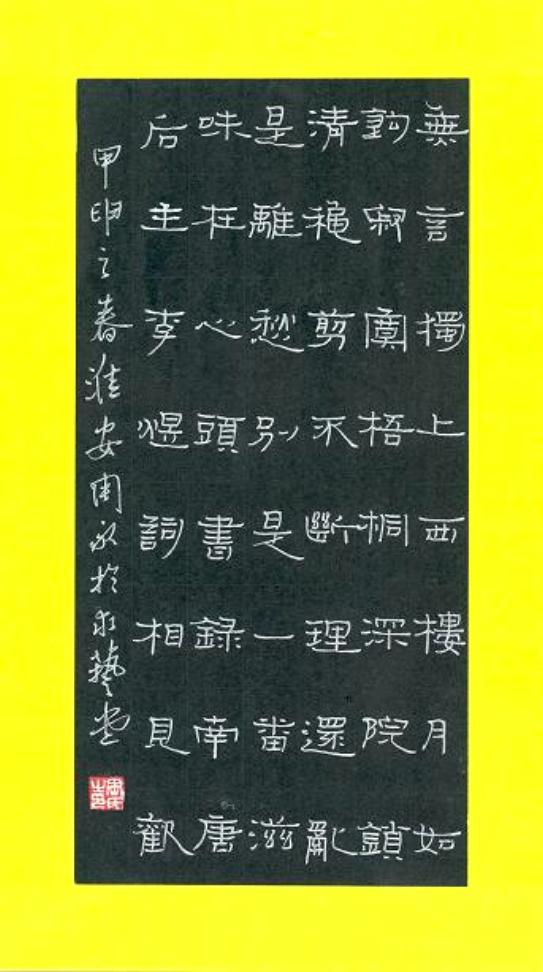 無言獨上西樓月如
鈎寂寞梧桐深院鎖
清穐剪不斷理還亂
是離愁別是一番滋
味在心頭書錄南唐
后主李煜詞相見歡
甲申之春淮安周於藝堂